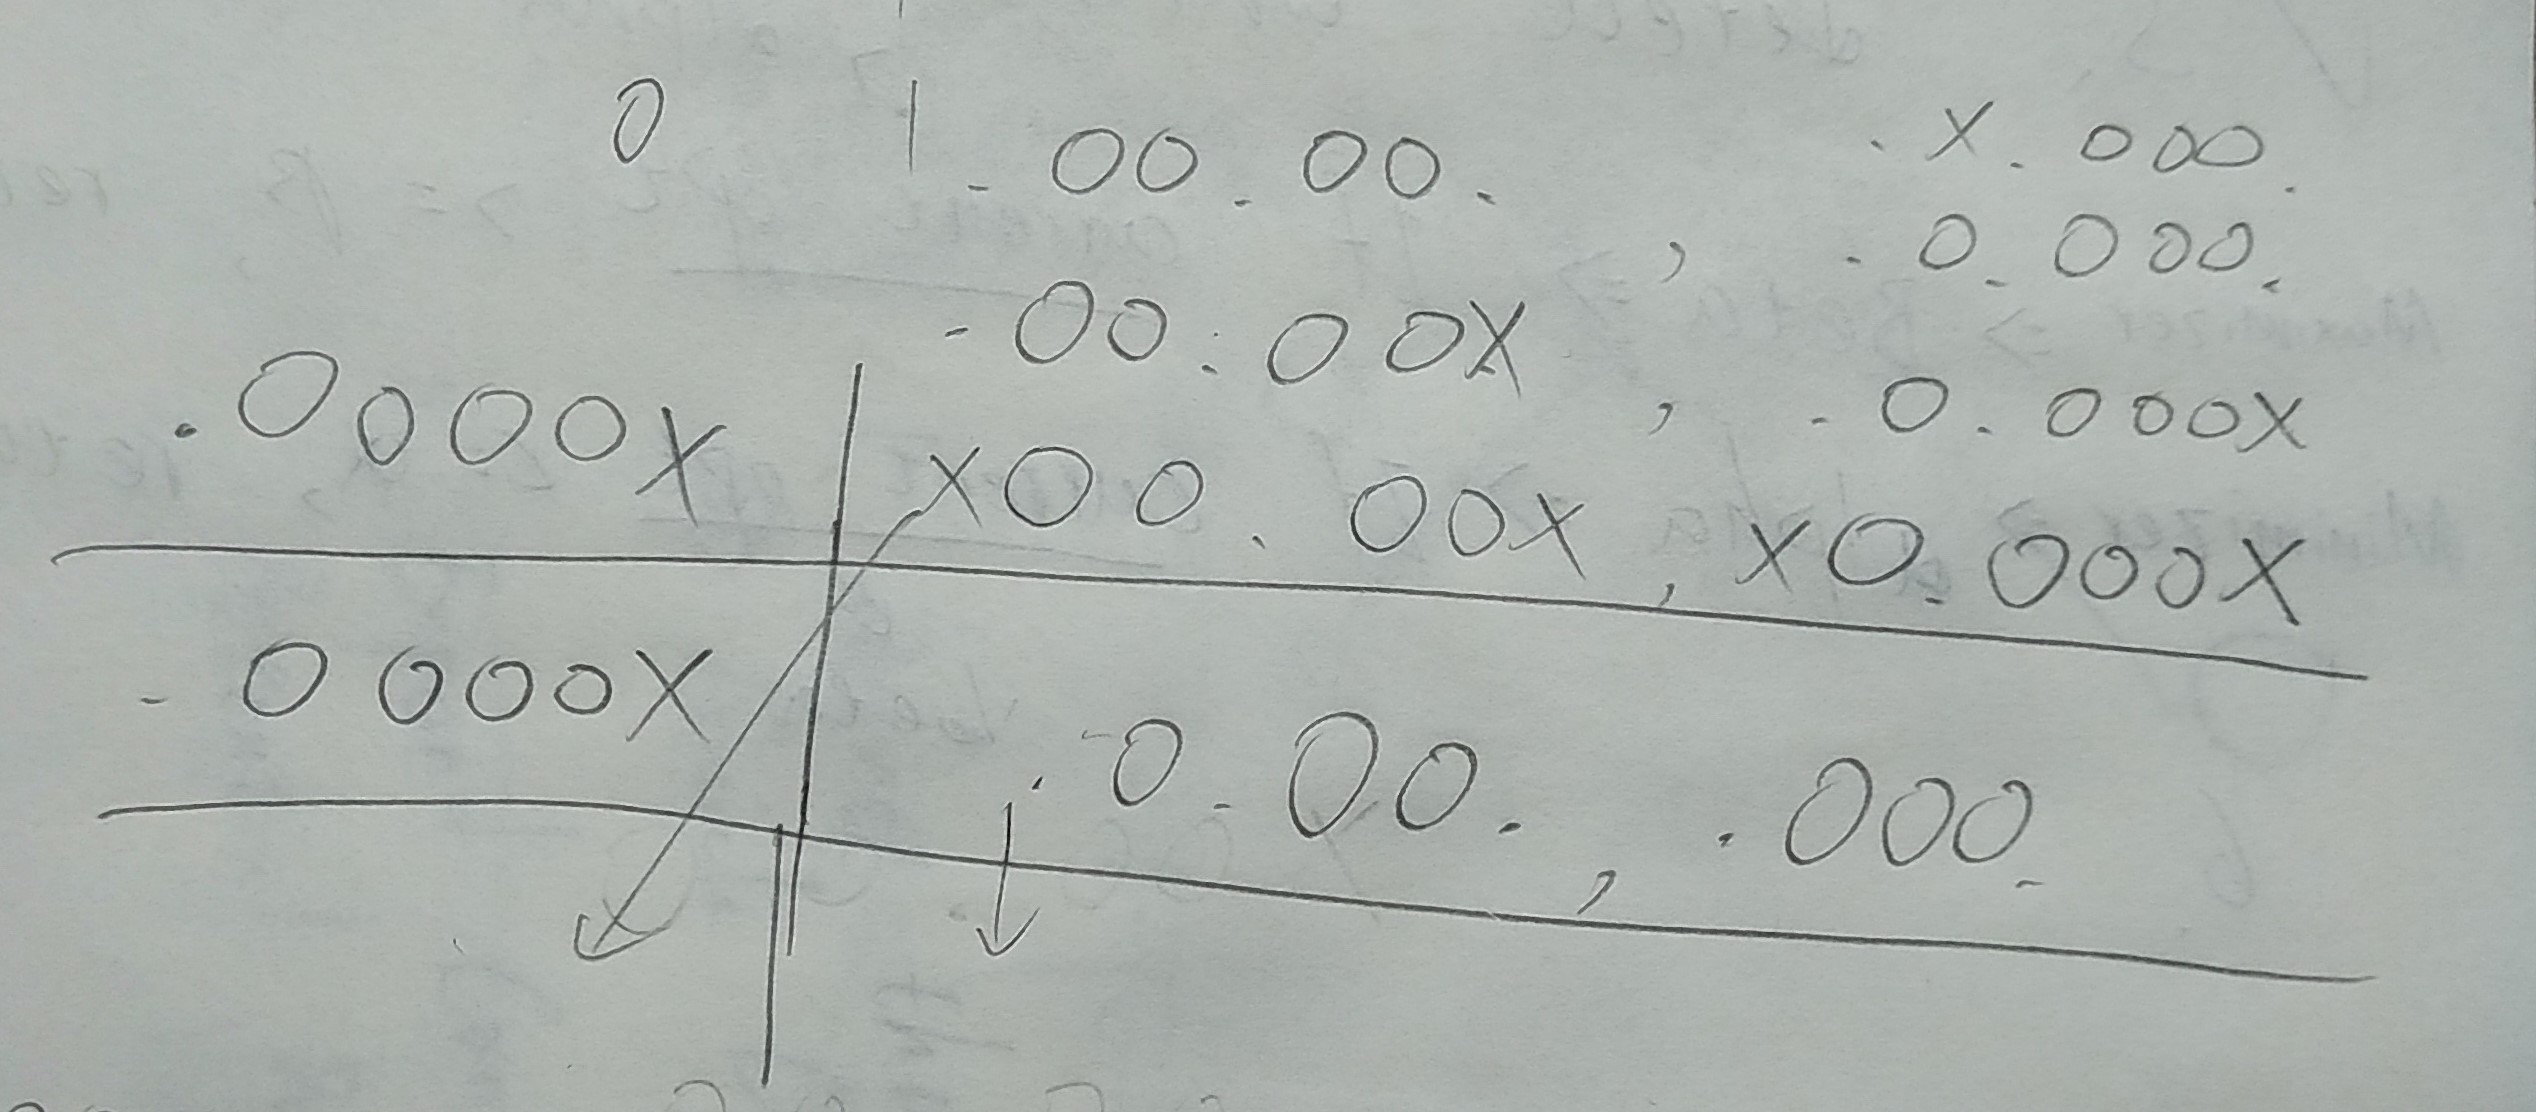 0 1 .00.00. .X.000.
, .0.000.
.00.00X , .0.000X
.0000X X00.00X , X0.000X
.0000X .0.00. , .000.